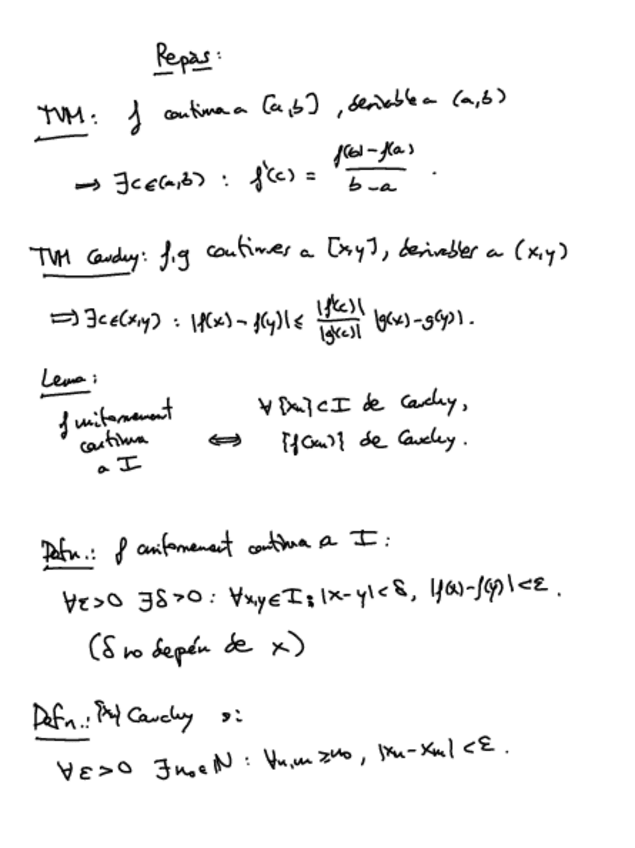 Repàs:
TVM: f contínua a [a,b], derivable a (a,b)
⟹ ∃c∈(a,b) : f'(c) = (f(b)-f(a))/(b-a).
TVM Cauchy: f,g contínues a [x,y], derivables a (x,y)
⟹ ∃c∈(x,y) : |f(x)-f(y)| ≤ |f'(c)|/|g'(c)| |g(x)-g(y)|.
Lema:
f uniformement contínua a I ⟺ ∀{xn}⊂I de Cauchy, {f(xn)} de Cauchy.
Defn.: f uniformement contínua a I:
∀ε>0 ∃δ>0: ∀x,y∈I: |x-y|<δ, |f(x)-f(y)|<ε.
(δ no depèn de x)
Defn.: {xn} Cauchy si:
∀ε>0 ∃n₀∈ℕ : ∀n,m≥n₀, |xn-xm|<ε.